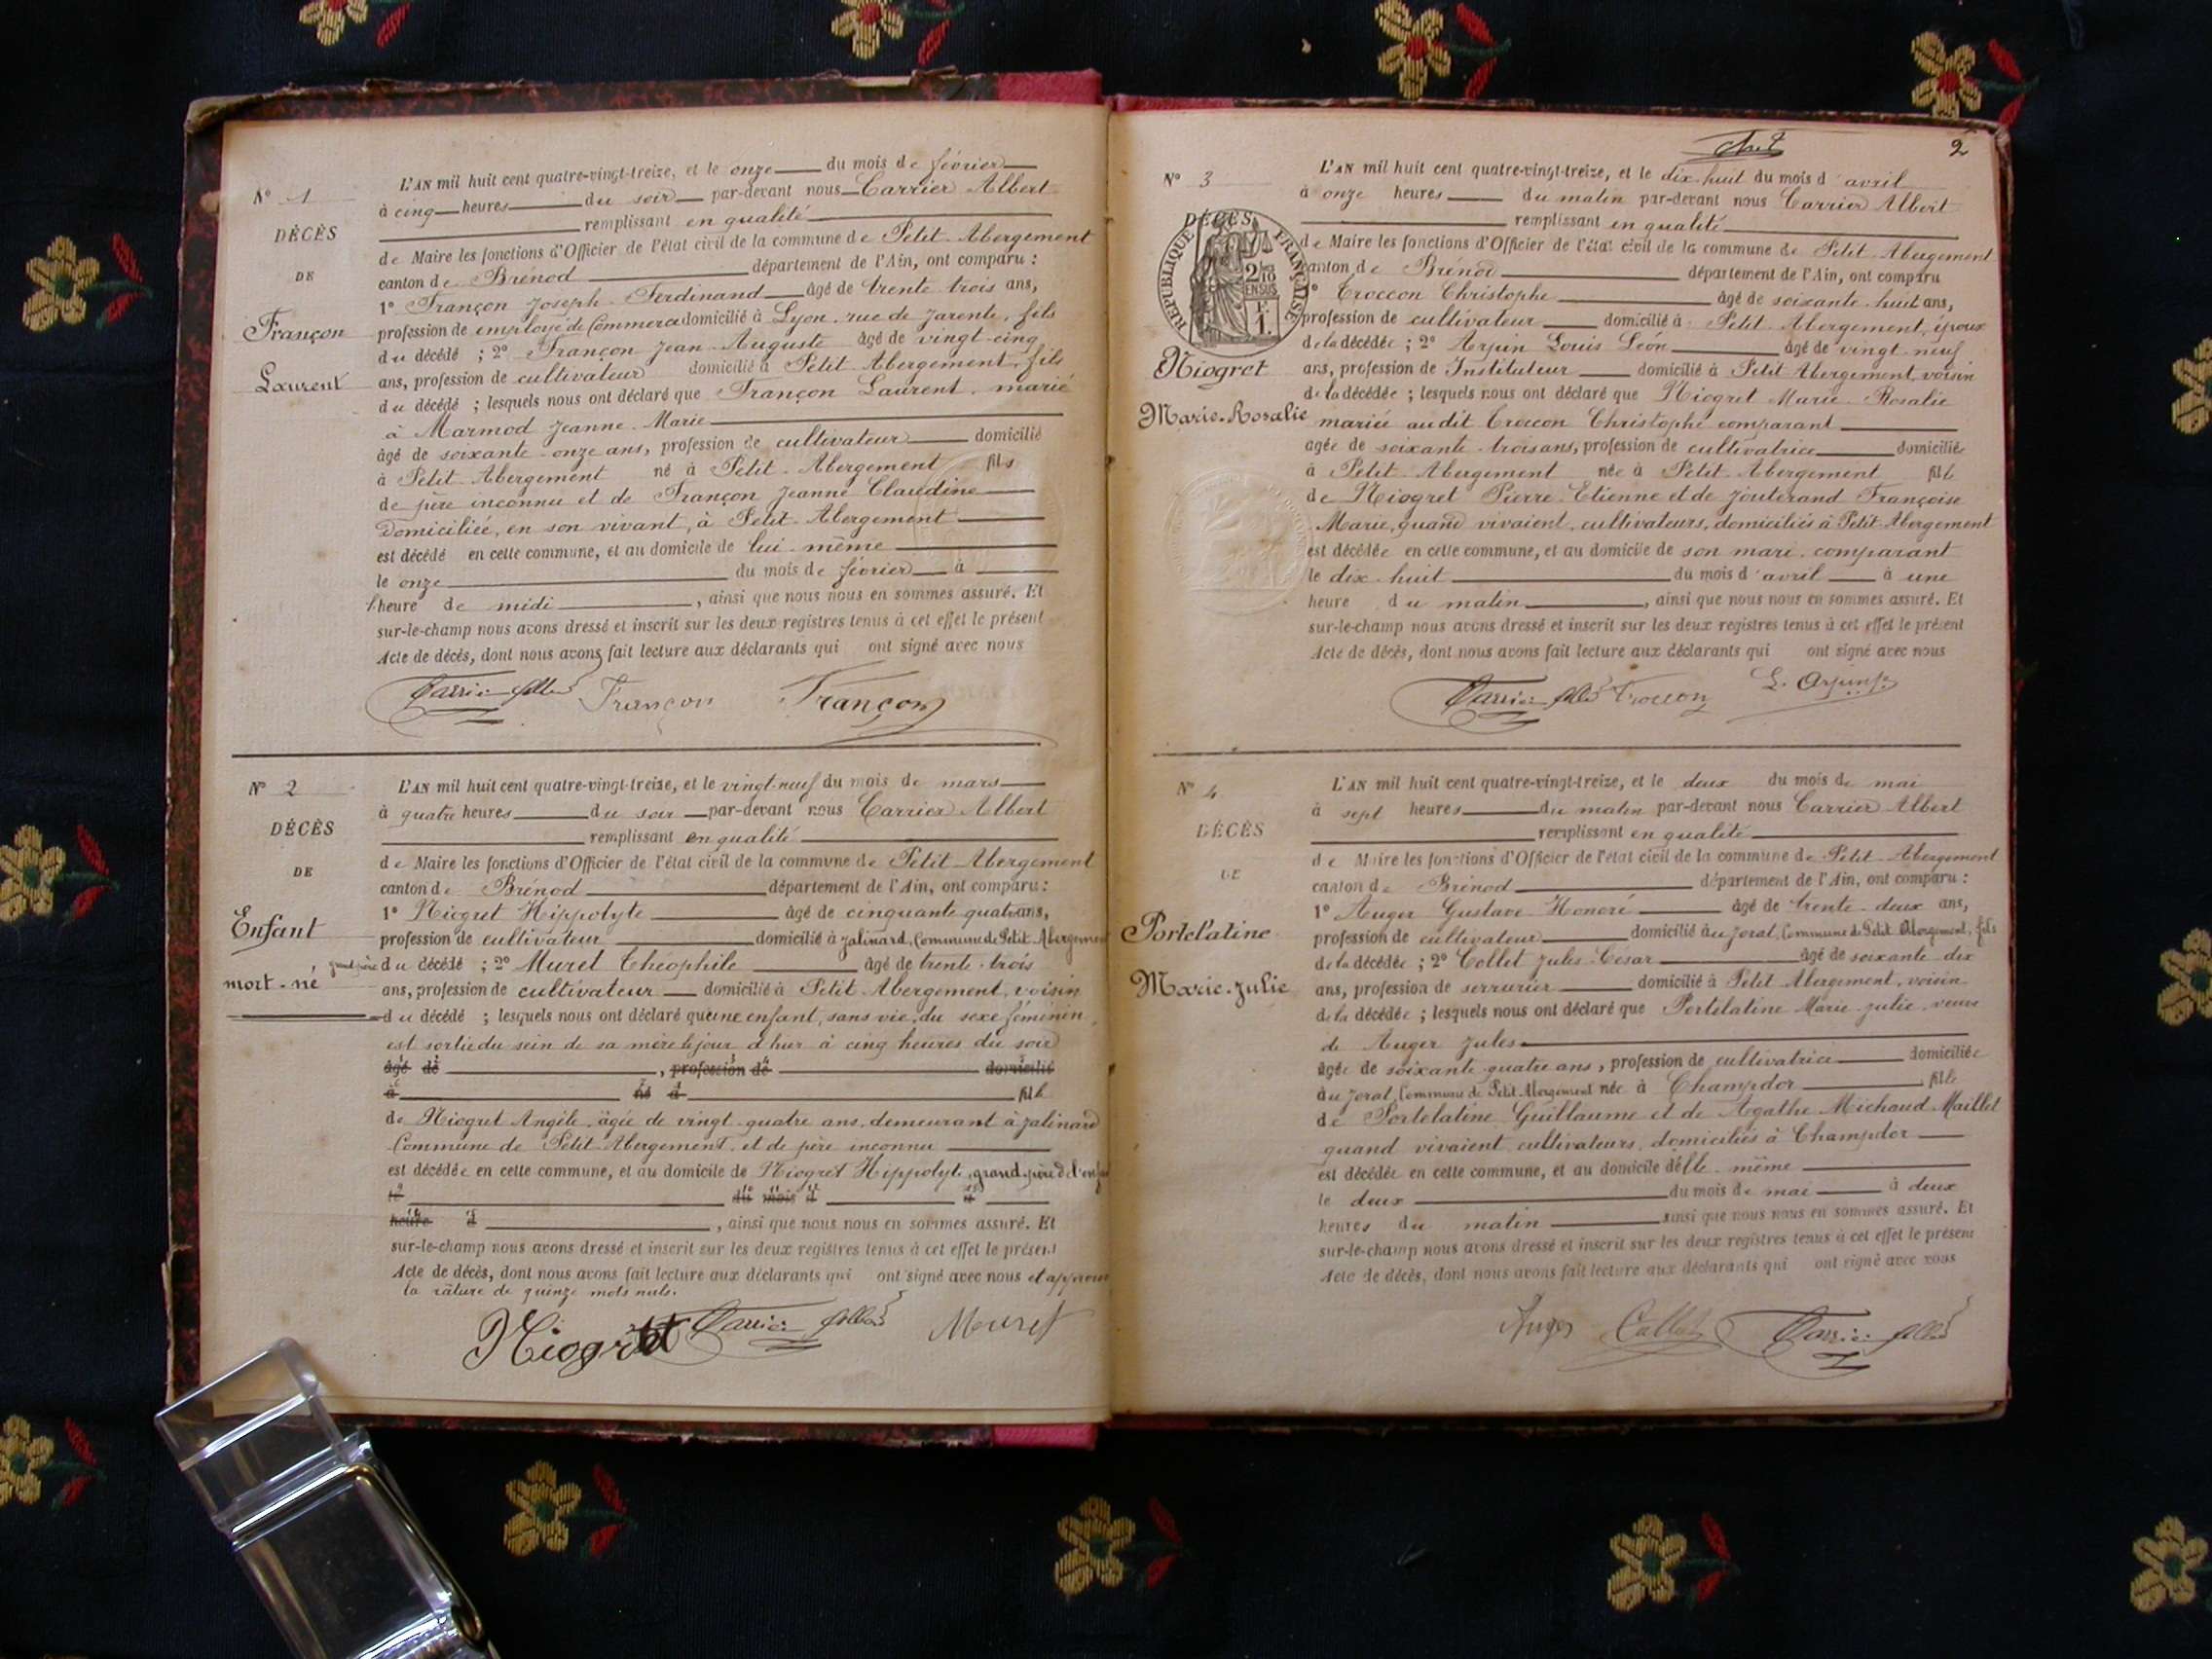 N° 1
DÉCÈS
DE
Françon
Laurent
L'AN mil huit cent quatre-vingt-treize, et le onze du mois de février
à cinq heures du soir par-devant nous Carrier Albert
remplissant en qualité
de Maire les fonctions d'Officier de l'état civil de la commune de Petit-Abergement
canton de Brénod département de l'Ain, ont comparu :
1° Françon Joseph-Ferdinand âgé de trente trois ans,
profession de employé de Commerce domicilié à Lyon, rue de Jarente, fils
du décédé ; 2° Françon Jean-Auguste âgé de vingt-cinq
ans, profession de cultivateur domicilié à Petit-Abergement, fils
du décédé ; lesquels nous ont déclaré que Françon Laurent, marié
à Marmod Jeanne-Marie
âgé de soixante-onze ans, profession de cultivateur domicilié
à Petit-Abergement né à Petit-Abergement fils
de père inconnu et de Françon Jeanne Claudine
domiciliée, en son vivant, à Petit-Abergement
est décédé en cette commune, et au domicile de lui-même
le onze du mois de février à
l'heure de midi, ainsi que nous nous en sommes assuré. Et
sur-le-champ nous avons dressé et inscrit sur les deux registres tenus à cet effet le présent
Acte de décès, dont nous avons fait lecture aux déclarants qui ont signé avec nous
Carrier Albert Françon Françon
N° 2
DÉCÈS
DE
Enfant
mort-né
L'AN mil huit cent quatre-vingt-treize, et le vingt-neuf du mois de mars
à quatre heures du soir par-devant nous Carrier Albert
remplissant en qualité
de Maire les fonctions d'Officier de l'état civil de la commune de Petit-Abergement
canton de Brénod département de l'Ain, ont comparu :
1° Niogret Hippolyte âgé de cinquante-quatre ans,
profession de cultivateur domicilié à Jalinard, Commune de Petit-Abergement
grand-père du décédé ; 2° Muret Théophile âgé de trente-trois
ans, profession de cultivateur domicilié à Petit-Abergement, voisin
du décédé ; lesquels nous ont déclaré qu'une enfant, sans vie, du sexe féminin,
est sortie du sein de sa mère le jour d'hier à cinq heures du soir
âgé de, profession de domicilié
à né à fille
de Niogret Angèle, âgée de vingt-quatre ans, demeurant à Jalinard
Commune de Petit-Abergement, et de père inconnu
est décédée en cette commune, et au domicile de Niogret Hippolyte, grand-père de l'enfant
le du mois d à
heure d, ainsi que nous nous en sommes assuré. Et
sur-le-champ nous avons dressé et inscrit sur les deux registres tenus à cet effet le présent
Acte de décès, dont nous avons fait lecture aux déclarants qui ont signé avec nous et approuvé
la râture de quinze mots nuls.
Niogret Carrier Albert Muret
2
N° 3
DÉCÈS
RÉPUBLIQUE FRANÇAISE
2/10 EN SUS
F. 1.
Niogret
Marie-Rosalie
L'AN mil huit cent quatre-vingt-treize, et le dix-huit du mois d'avril
à onze heures du matin par-devant nous Carrier Albert
remplissant en qualité
de Maire les fonctions d'Officier de l'état civil de la commune de Petit-Abergement
canton de Brénod département de l'Ain, ont comparu
1° Troccon Christophe âgé de soixante-huit ans,
profession de cultivateur domicilié à Petit-Abergement, époux
de la décédée ; 2° Arpin Louis Léon âgé de vingt-neuf
ans, profession de Instituteur domicilié à Petit Abergement, voisin
de la décédée ; lesquels nous ont déclaré que Niogret Marie-Rosalie
mariée audit Troccon Christophe comparant
âgée de soixante-trois ans, profession de cultivatrice domiciliée
à Petit-Abergement née à Petit-Abergement fille
de Niogret Pierre-Etienne et de Jouterand Françoise
Marie, quand vivaient, cultivateurs, domiciliés à Petit-Abergement
est décédée en cette commune, et au domicile de son mari, comparant
le dix-huit du mois d'avril à une
heure du matin, ainsi que nous nous en sommes assuré. Et
sur-le-champ nous avons dressé et inscrit sur les deux registres tenus à cet effet le présent
Acte de décès, dont nous avons fait lecture aux déclarants qui ont signé avec nous
Carrier Albert Troccon L. Arpin
N° 4
DÉCÈS
DE
Portelatine
Marie-Julie
L'AN mil huit cent quatre-vingt-treize, et le deux du mois de mai
à sept heures du matin par-devant nous Carrier Albert
remplissant en qualité
de Maire les fonctions d'Officier de l'état civil de la commune de Petit-Abergement
canton de Brénod département de l'Ain, ont comparu :
1° Auger Gustave-Honoré âgé de trente-deux ans,
profession de cultivateur domicilié au Jorat, Commune de Petit Abergement, fils
de la décédée ; 2° Collet Jules-César âgé de soixante-dix
ans, profession de serrurier domicilié à Petit Abergement, voisin
de la décédée ; lesquels nous ont déclaré que Portelatine Marie-Julie, veuve
de Auger Jules
âgée de soixante-quatre ans, profession de cultivatrice domiciliée
au Jorat, Commune de Petit-Abergement née à Champdor fille
de Portelatine Guillaume et de Agathe Michaud-Maillet
quand vivaient cultivateurs, domiciliés à Champdor
est décédée en cette commune, et au domicile d'elle-même
le deux du mois de mai à deux
heures du matin ainsi que nous nous en sommes assuré. Et
sur-le-champ nous avons dressé et inscrit sur les deux registres tenus à cet effet le présent
Acte de décès, dont nous avons fait lecture aux déclarants qui ont signé avec nous
Auger Collet Carrier Albert